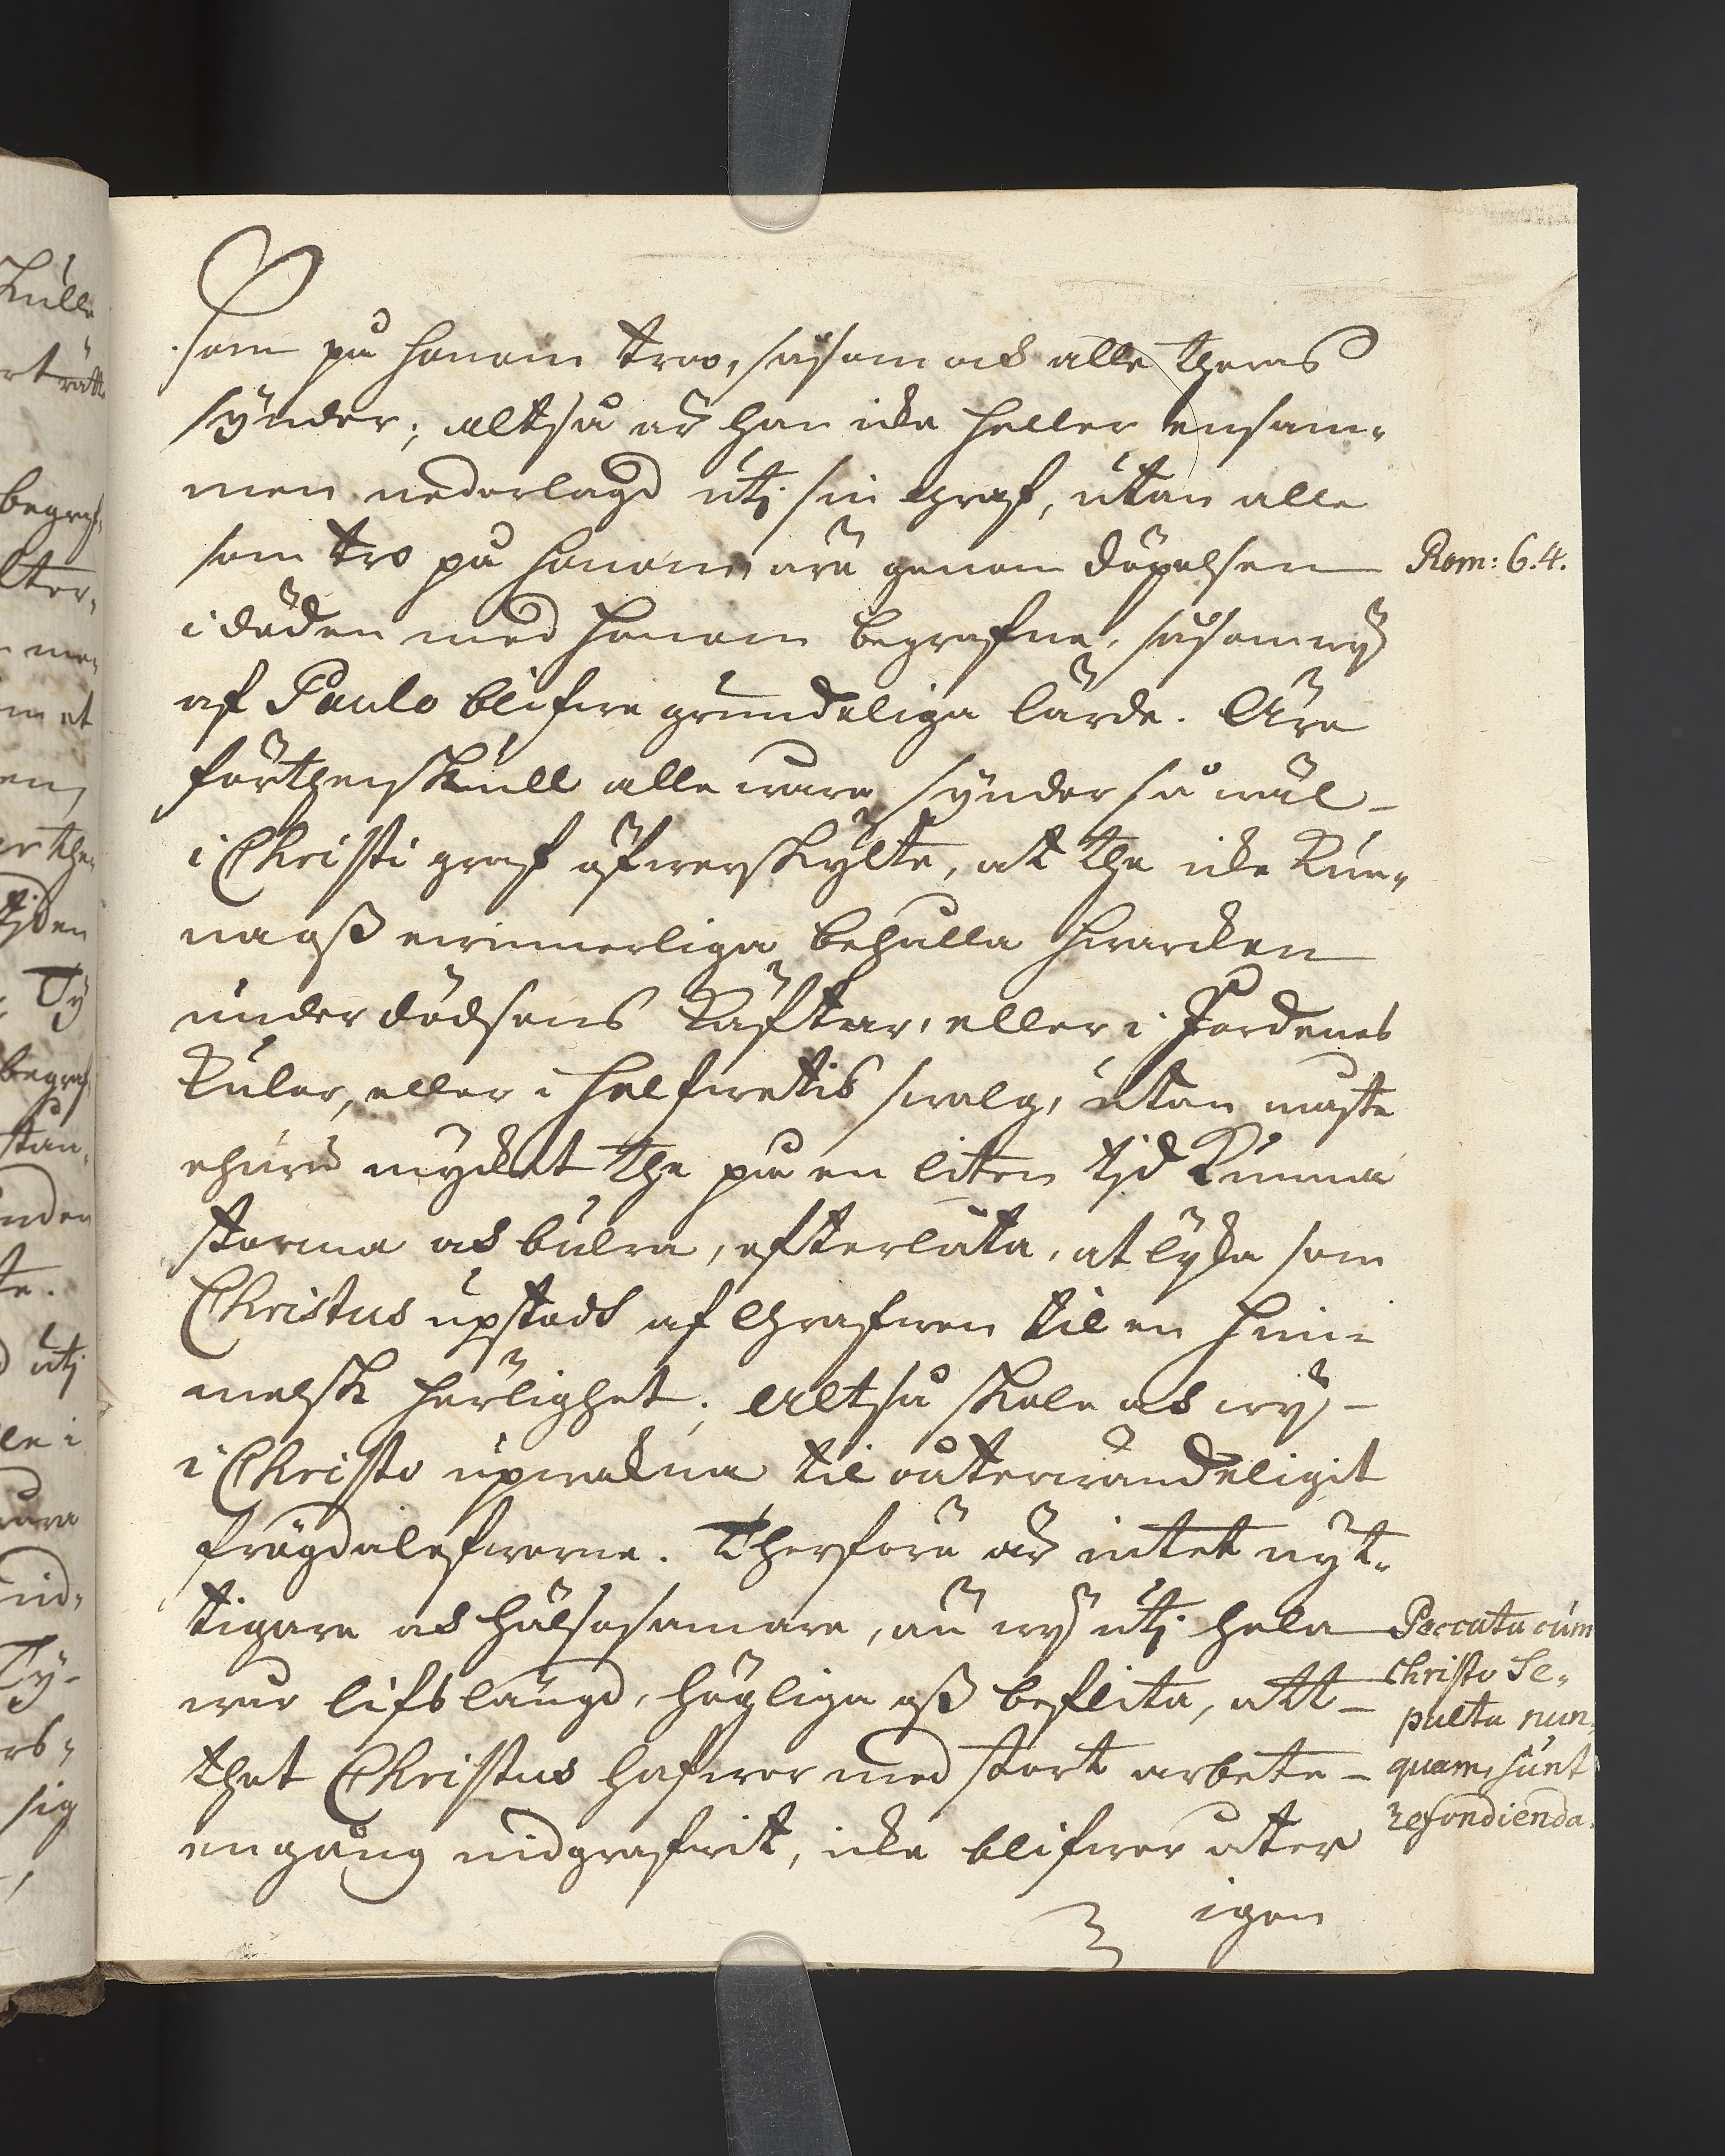 som på honom troo, såsom ock alle theras
synder; altså är han icke heller ensam-
men nederlagd utj sin Graf, utan alle
som tro på honom, äre genom döpelsen
i döden med honom begrafne, såsom wÿ
af Paulo blifwe grundeliga lärde. Äre
förthenskull alle wåra synder så wäl
i Christi graf öfwerskylte, at the icke kun-
na oß ewinnerliga behålla hwarcken
under dödsens käftar, eller i Jordenes
kulor, eller i helfwetis swalg, utan måste
ehuru mÿcket the på en liten tjd kunna
storma ock bulra, efterlåta, at lÿka som
Christus upstodt af Grafwen til en him-
melsk härlighet; altså skole ock wÿ
i Christo upwakna til oåterwändeligit
frögdalefwerne. Therföre är intet nÿt-
tigare ock hälsosammare, än wÿ utj hela
wår lifslängd, högliga oß beflita, att
thet Christus hafwer med stort arbete
en gång nidgrafwit, icke blifwer åter
igen
Rom: 6.4.
Peccata cum
Christo Se-
pulta nun-
quam sunt
refondienda.